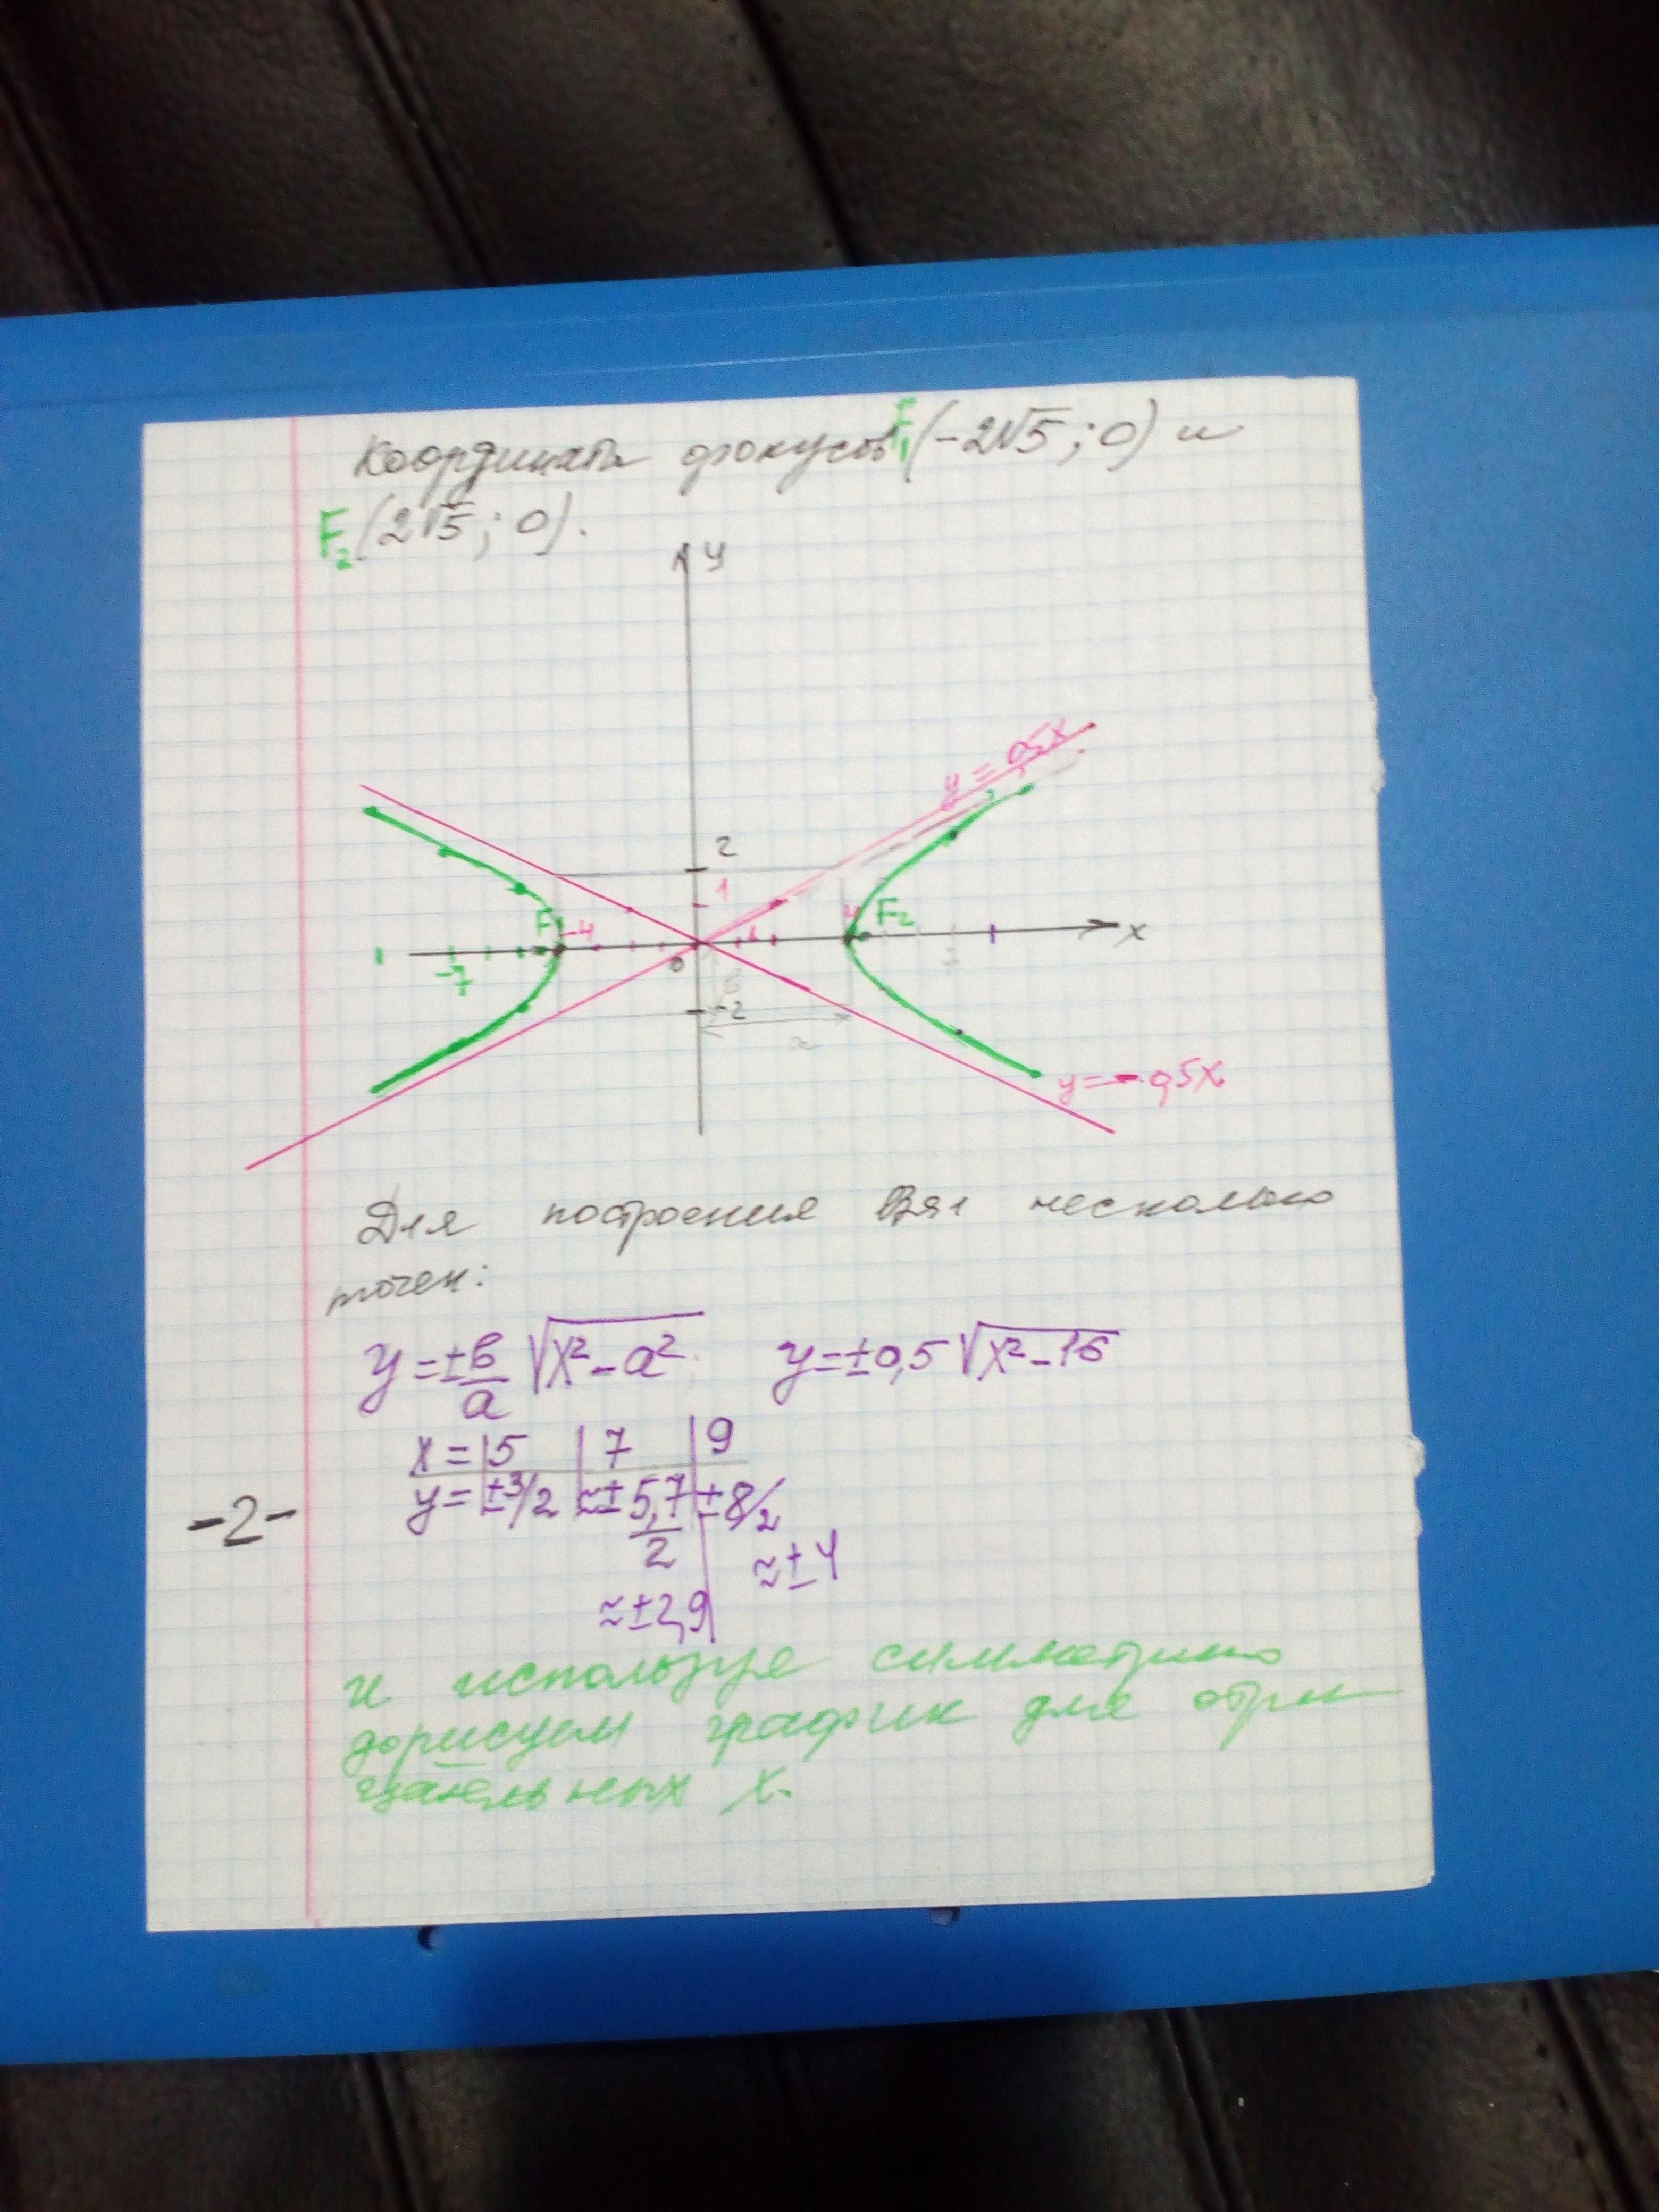 Координаты фокусов F₁(-2√5; 0) и
F₂(2√5; 0).
y
y = 0,5x
2
1
F -4 4 F₂
-7 0 1 7 x
в
-2
a
y = -0,5x
Для построения взял несколько
точек:
y = ± в/a √(x² - a²) y = ±0,5 √(x² - 16)
x = | 5 | 7 | 9
y = | ±3/2 | ≈ ± 5,7/2 | ± 8/2
-2-
≈ ± 4
≈ ± 2,9
и используя симметрию
дорисуем график для отри
цательных x.